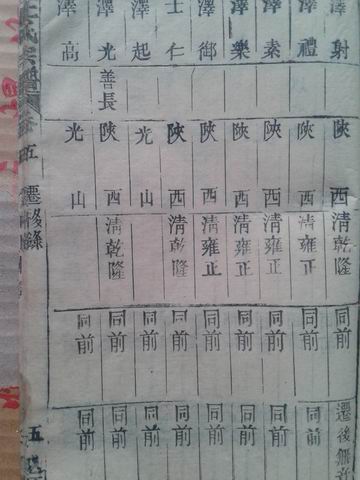 澤射 陝西 遷後無音
澤禮 陝西 清雍正 同前 同前
澤素 陝西 清雍正 同前 同前
澤樂 陝西 清雍正 同前 同前
澤御 陝西 清雍正 同前 同前
士仁 陝西 清乾隆 同前 同前
澤起 光山 同前 同前
澤光 善長 陝西 清乾隆 同前 同前
澤高 光山 同前 同前
五 遷移錄 五